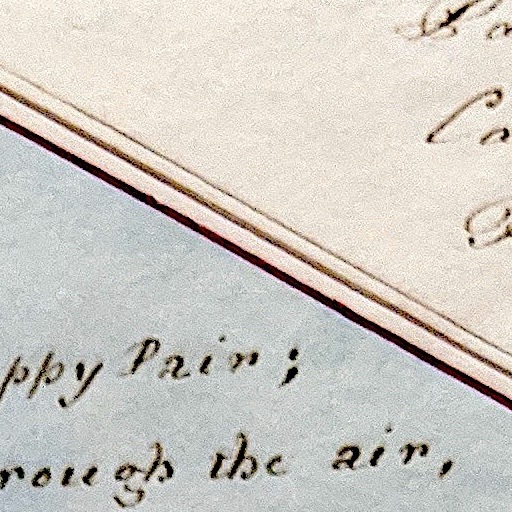 Ca
ppy Pair;
rough the air,